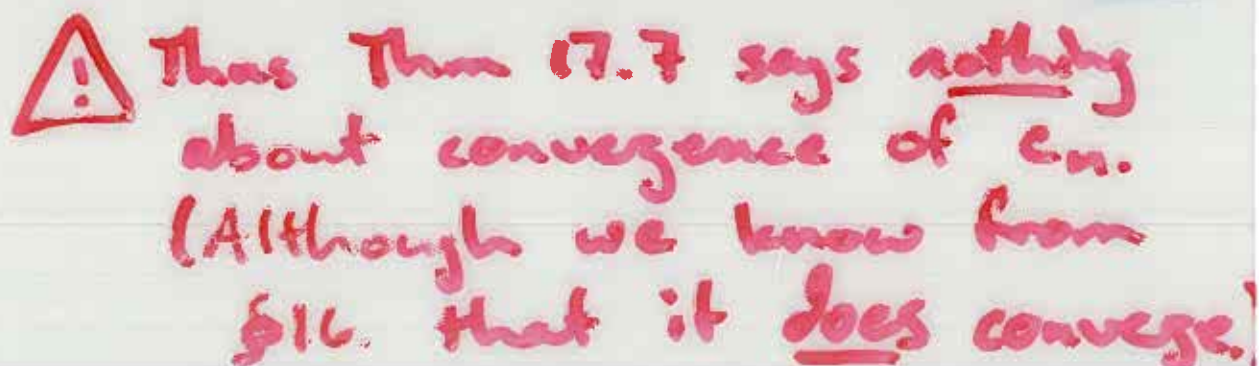 Thus Thm 17.7 says nothing
about convergence of cn.
(Although we know from
§16. that it does converge.)